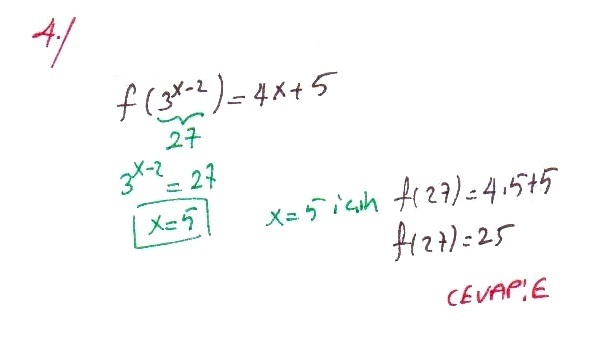 4./
f(3^{x-2}) = 4x+5
27
3^{x-2} = 27
x=5
x=5 için f(27)=4.5+5
f(27)=25
CEVAP:E